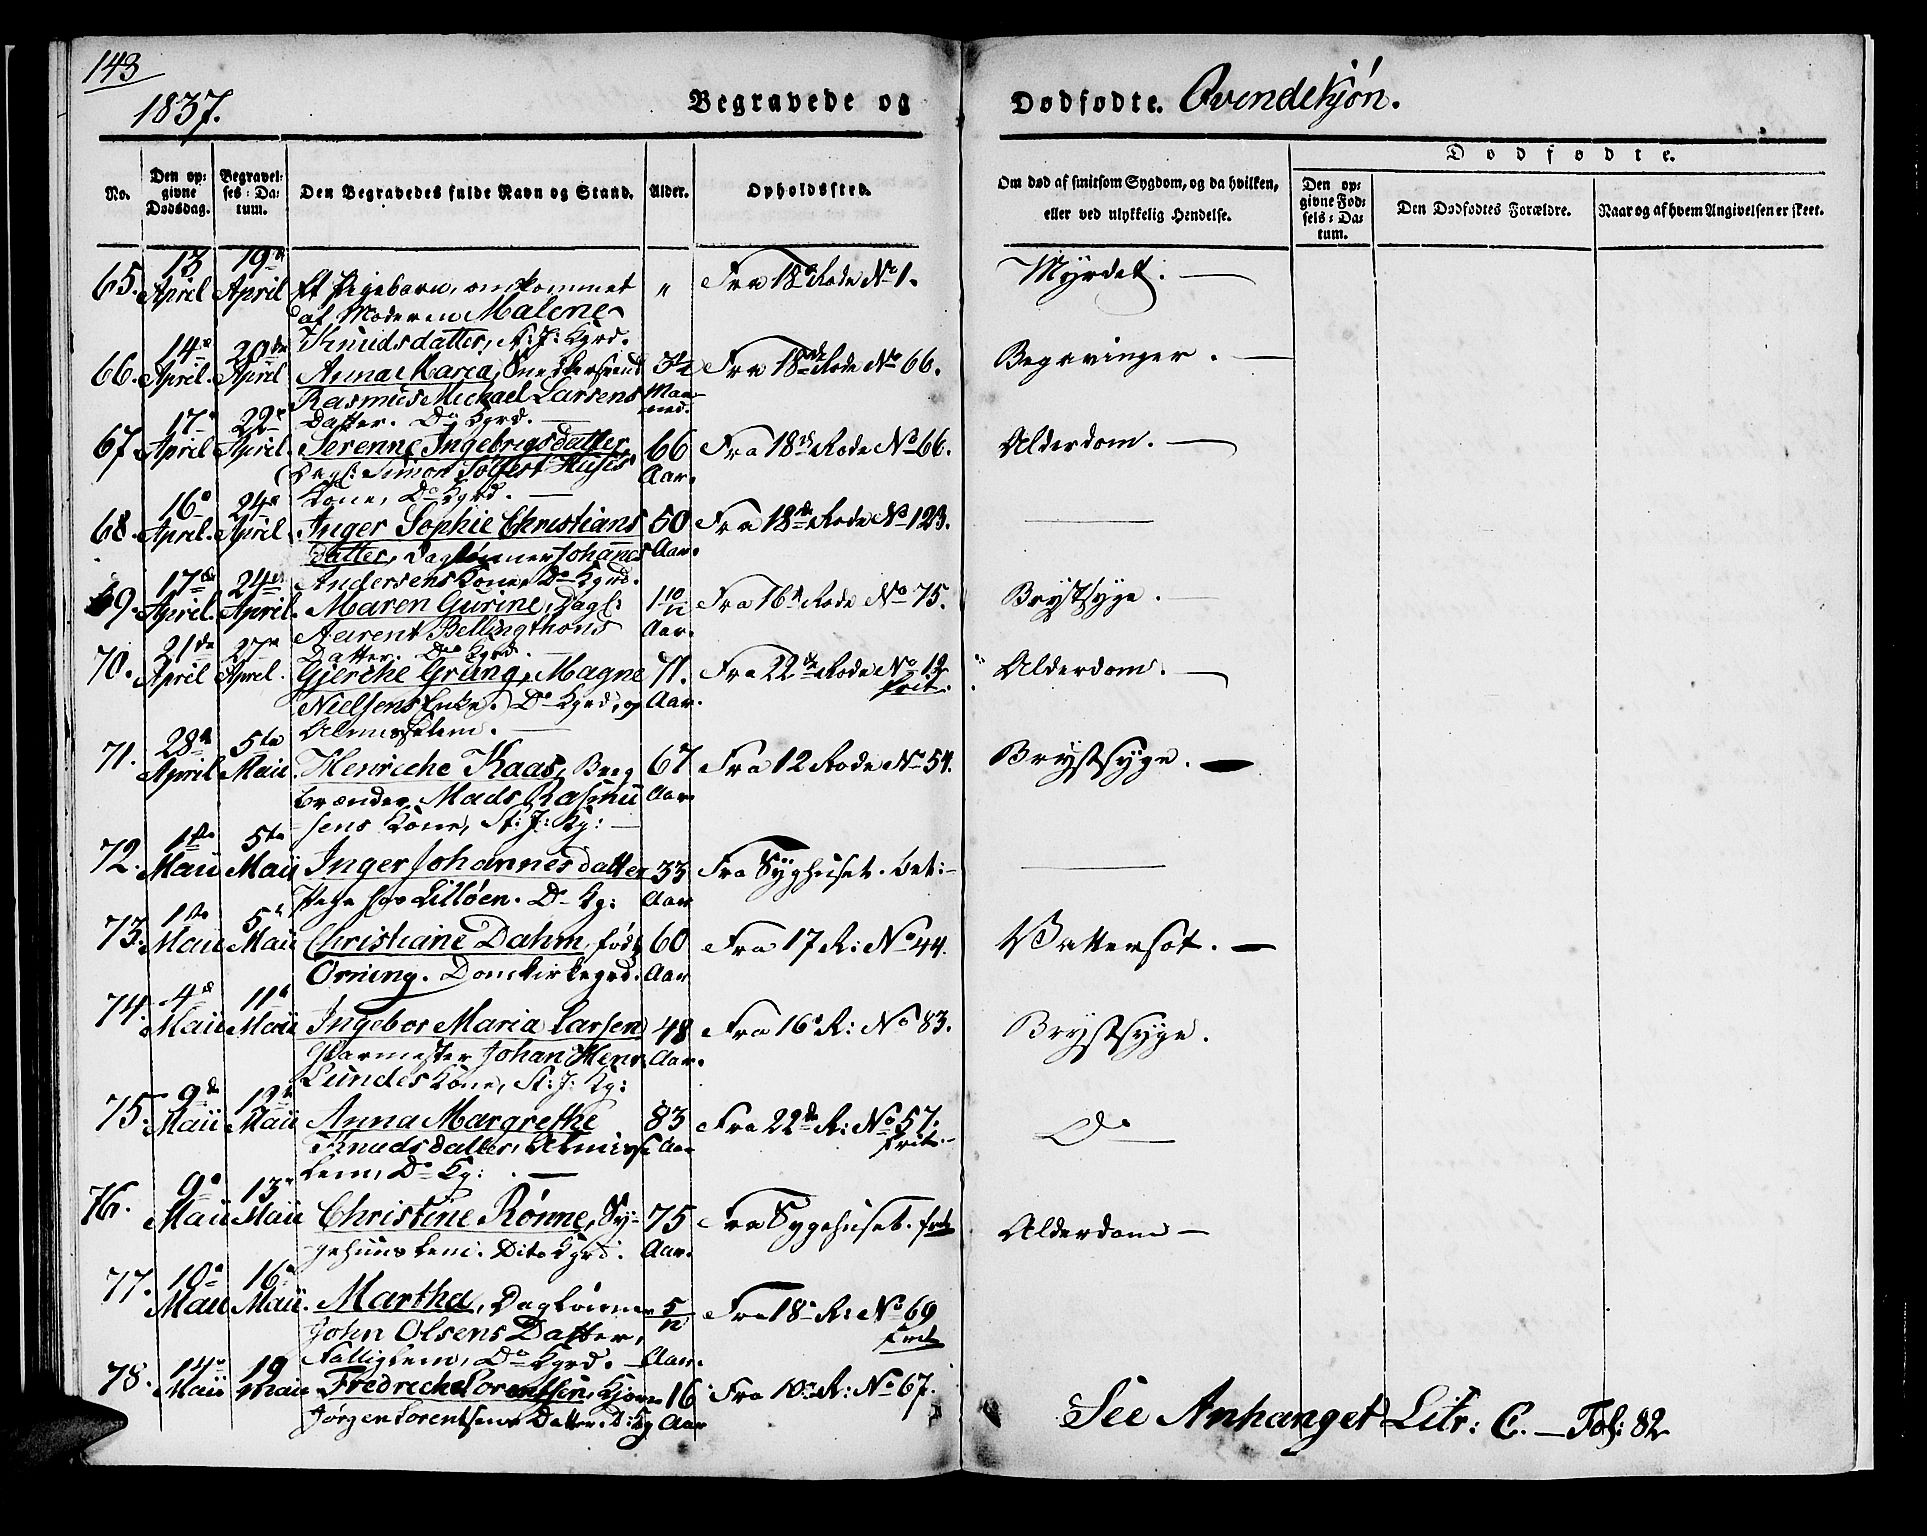 143
1837.
Begravede og Dødfødte. Qvindekjøn.
No.
Den opgivne Dødsdag.
Begravelses-Datum.
Den Begravedes fulde Navn og Stand.
Alder.
Opholdssted.
Om død af smitsom Sygdom, og da hvilken,
eller ved ulykkelig Hendelse.
Dødfødte.
Den opgivne Fødsels-Datum.
Den Dødfødtes Forældre.
Naar og af hvem Angivelsen er skeet.
65. 13 April 19de April Et Pigebarn, omkommet " Fra 18de Rode No 1. Myrdet.
af Moderen Malene
Knudsdatter, St: J: Kgrd.
66. 14de April. 20de April Anna Maria, Snedkersvend 3½ Fra 18de Rode No 66. Begavinger.
Rasmus Michael Larsens Maaned.
Datter. Do Kgrd.
67. 17de April 22de April. Serenne Ingebrigsdatter, 66 Fra 18de Rode No 66. Alderdom.
Dagl: Simon Aar.
Kone, Do Kgrd.
68. 16de April. 24de April. Inger Sophie Christians 50 Fra 18de Rode No 123.
datter, Dagleønner Johannes Aar.
Andersens Kone, Do Kgrd.
69. 17de April. 24de April. Maren Gurine, Dagl: 1 10/12 Fra 16de Rode No 75. Brystsyge.
Aarent Bellingthons Aar.
Datter. Do Kgrd.
70. 21de April 27de April. Gjerthe Grung, Magne 71. Fra 22de Rode No 12 Alderdom.
Nielsens Enke. Do Kgrd, og Aar. frit.
Almisselem.
71. 28de April 5te Maii Henriche Kaas, Breg 67 Fra 12 Rode No 54. Brystsyge.
brænder Mads Rasmu Aar
sens Kone, St: J: Kg:
72. 1ste Maii 5te Maii Inger Johannesdatter 33 Fra Syghuset. bet:
Pige fra Lilløen. Do Kg: Aar
73. 1ste Maii 5te Maii Christiane Dahm, født 60 Fra 17 R: No 44. Vattersot.
Orning. Domkirkegrd. Aar
74. 4de Maii 11te Maii Ingebor Maria Larsen 48 Fra 16de R: No 83. Brystsyge.
Johan Henr. Aar.
Lundes Kone, St: J: Kg:
75. 9de Maii 12te Maii Anna Margrethe 83 Fra 22de R: No 57. Do
Knudsdatter, Almisse Aar frit.
lem, Do Kg:
76. 9de Maii 13de Maii Christine Rønne, Sy- 75 Fra Sygehuset. frit Alderdom
gehuus Lem. Dito Kgrd. Aar.
77. 10de Maii 16de Maii. Martha, Dagleønner 5/12 Fra 18de R: No 69
John Olsens Datter, frit
Fattiglem, Do Kgrd. Aar.
78. 14de Maii 19 Maii Fredriche Lorentsen, Kjøbm 16 Fra 10de R: No 67.
Jørgen Lorentsens Datter. Do Kg Aar
See Anhanget Litr: C. — Fol: 82